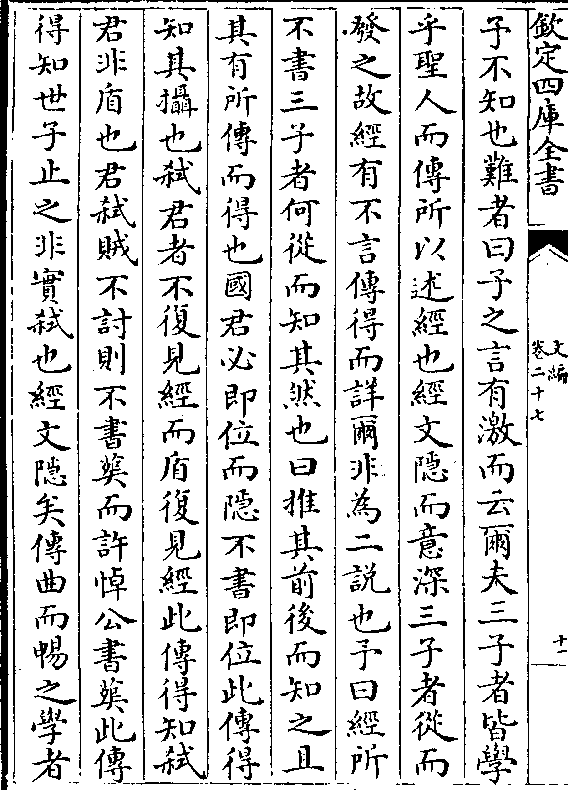 欽定四庫全書
文編
卷二十七
十一
子不知也難者曰子之言有激而云爾夫三子者皆學
乎聖人而傳所以述經也經文隱而意深三子者從而
發之故經有不言傳得而詳爾非為二説也予曰經所
不書三子者何從而知其然也曰推其前後而知之且
其有所傳而得也國君必即位而隱不書即位此傳得
知其攝也弑君者不復見經而盾復見經此傳得知弑
君非盾也君弑賊不討則不書𦵏而許悼公書𦵏此傳
得知世子止之非實弑也經文隱矣傳曲而暢之學者